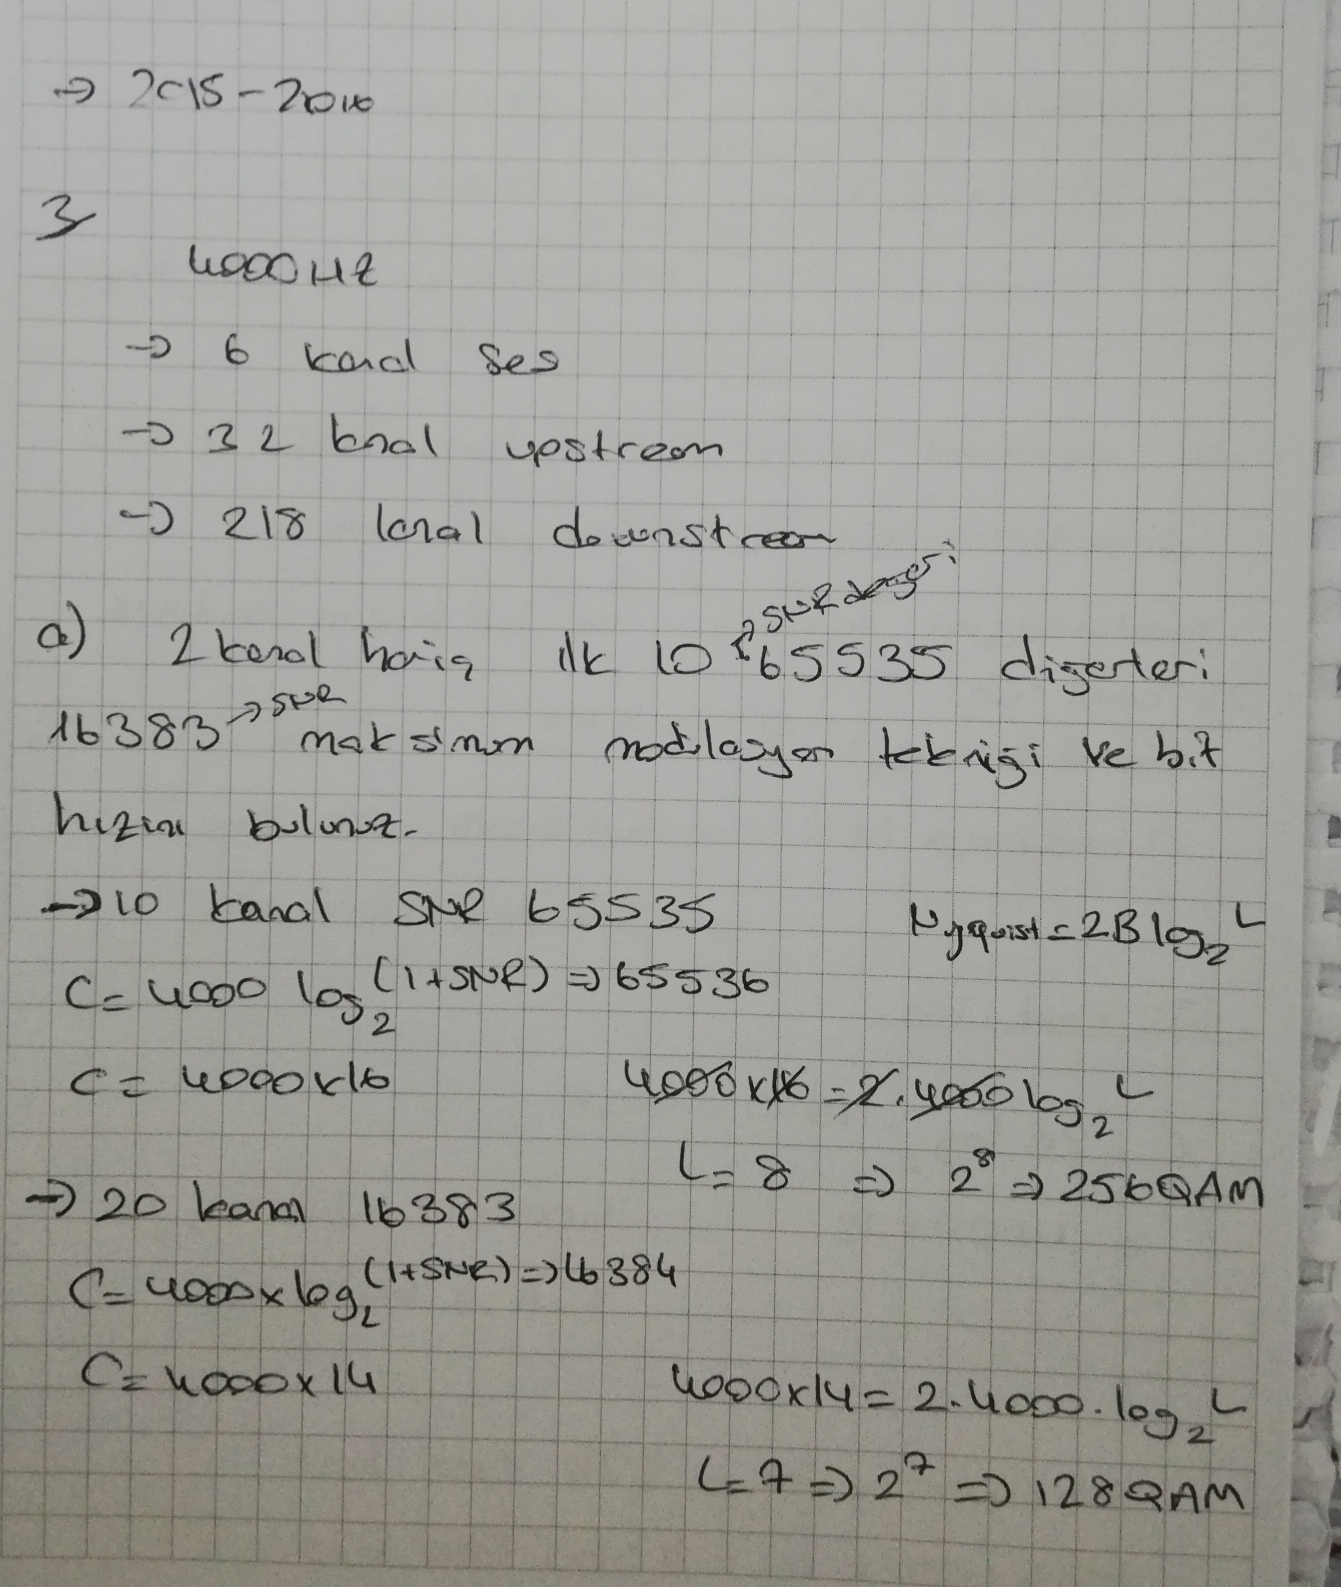 → 2015-2016
3
4000 HZ
→ 6 kanal ses
→ 32 kanal upstream
→ 218 kanal downstream
→ SNR değeri
a) 2 kanal hariç ilk 10 65535 diğerleri
16383 → SNR maksimum modülasyon tekniği ve bit
hızını bulunuz.
→ 10 kanal SNR 65535 Nyquist = 2B log₂ L
C = 4000 log₂ (1+SNR) ⇒ 65536
C = 4000x16 4000x16 = 2.4000 log₂ L
L = 8 ⇒ 2⁸ ⇒ 256QAM
→ 20 kanal 16383
C = 4000x log₂ (1+SNR) ⇒ 16384
C = 4000x14 4000x14 = 2.4000.log₂ L
L = 7 ⇒ 2⁷ ⇒ 128QAM